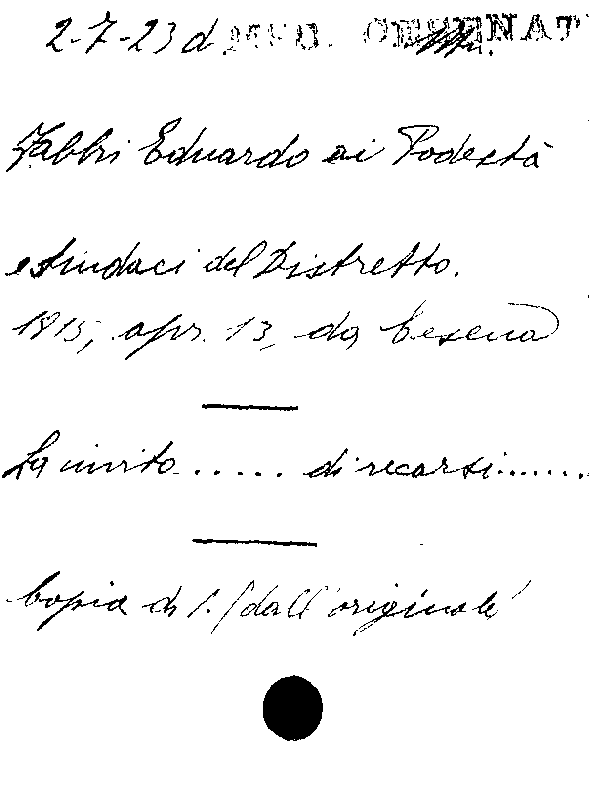 2-7-23 d
Fabbri Eduardo ai Podestà
e Sindaci del Distretto.
1815, apr. 13, da Cesena
Fa invito ..... di recarsi.......
Copia di 1. f dall'originale